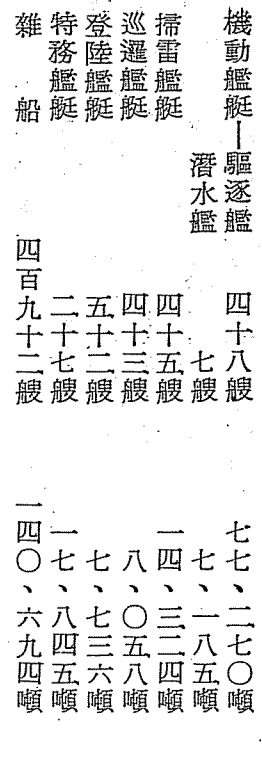 機動艦艇—驅逐艦　四十八艘　七七、二七〇噸
潛水艦　七艘　七、一八五噸
掃雷艦艇　四十五艘　一四、三二四噸
巡邏艦艇　四十三艘　八、〇五八噸
登陸艦艇　五十二艘　七、七三六噸
特務艦艇　二十七艘　一七、八四五噸
雜　船　四百九十二艘　一四〇、六九四噸